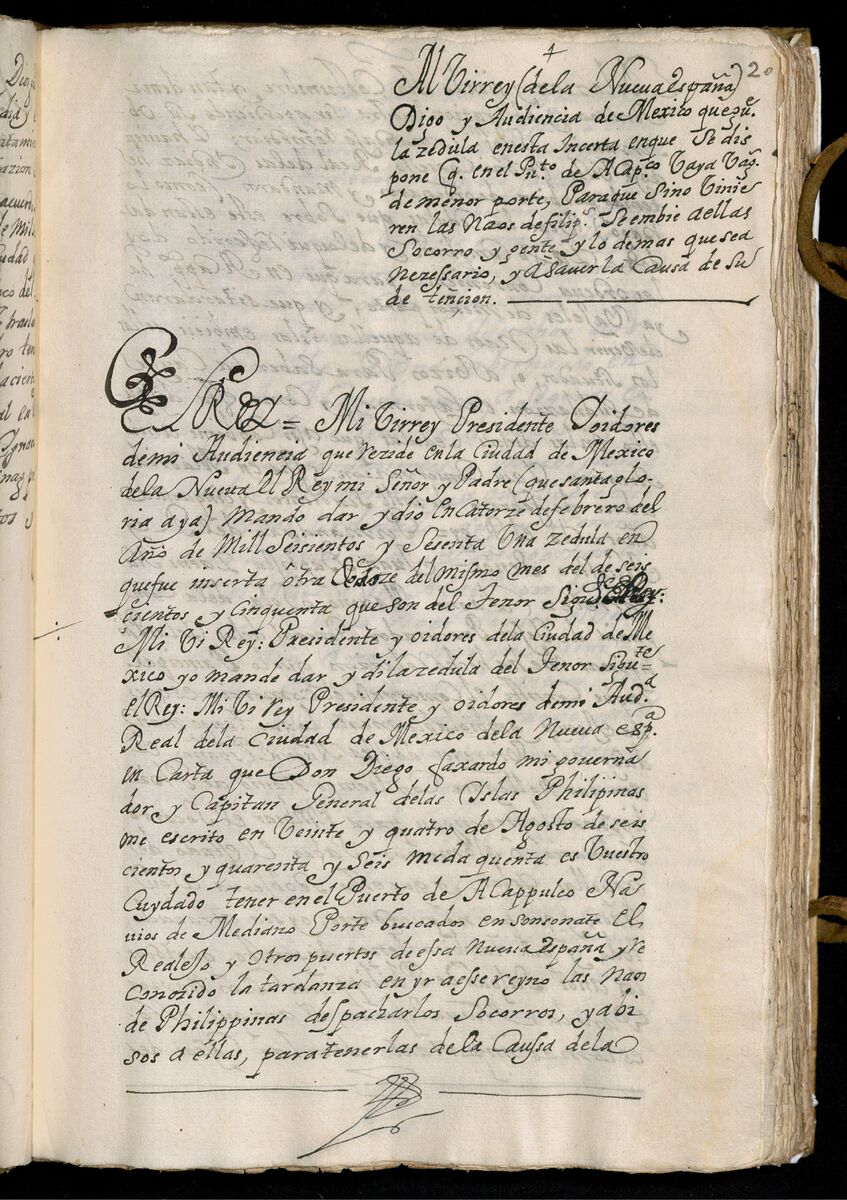 20
Al Virrey (dela Nueva España)
Digo y Audiencia de Mexico que gu.
la zedula enesta Incerta enque Se dis
pone q. en el Pu.to de ACap.co Vaya Vag.
de menor porte, Paraque Sino Vinie
ren las Naos de filip.s Se embie aellas
Socorro y gente y lo demas que sea
Nezessario, y aSaver la Causa de su
de tencion.
El Rey = Mi Virrey Presidente Ioidores
demi Audiencia que rezide enla Ciudad de Mexico
dela Nueva El Rey mi Señor y Padre (que santa glo-
ria aya) Mando dar y dio En Catorze de febrero del
Año de Mill Seisientos y Sesenta Una zedula en
quefue inserta ôtra Dose del mismo mes del de seis
cientos y Cinquenta que son del Tenor Sigue El Rey:
Mi Vi Rey: Presidente y oidores dela Ciudad de Me
xico yo mande dar y di la zedula del Tenor Sigu=te
el Rey: Mi Vi rey Presidente y oidores demi Aud.a
Real dela Ciudad de Mexico dela Nueva esp.a
en Carta que Don Diego faxardo mi governa
dor y Capitan General delas Islas Philipinas
me escrito en Veinte y quatro de Agosto de seis
cientos y quarenta y Seis meda quenta es Vuestro
Cuydado tener en el Puerto de ACappulco Na
vios de Mediano Porte buscados en sonsonate El
Realejo y otros puertos de essa Nueva España y re
Conozido la tardanza en yr aesse reyno las Naos
de Philippinas despacharlos Socorros, yabi
sos a ellas, paratenerlas dela Caussa dela